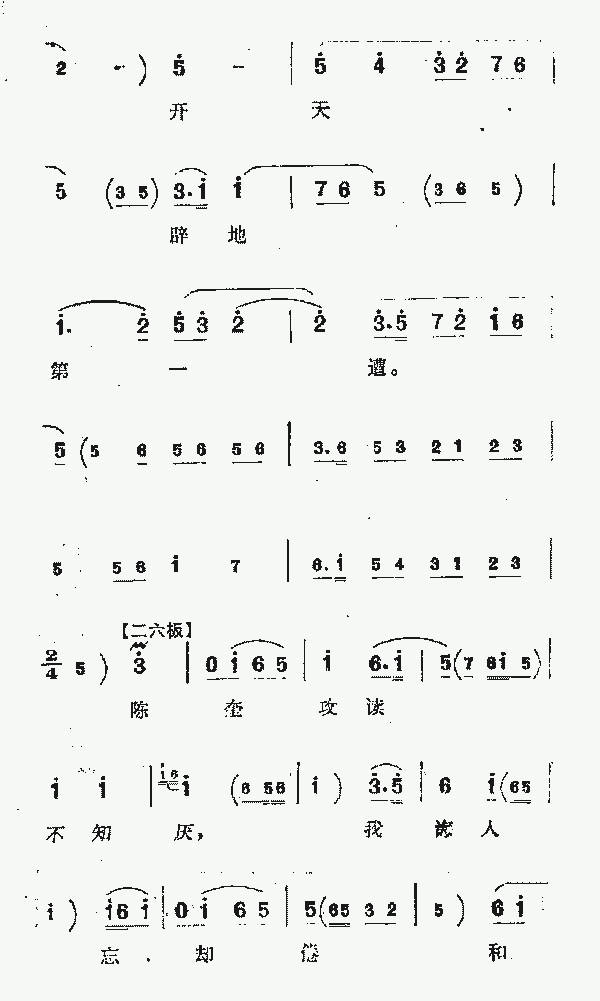 2 - ) 5 - | 5 4 3 2 7 6 |
开 天
5 (3 5) 3.1 1 | 7 6 5 (3 6 5) |
辟 地
1. 2 5 3 2 | 2 3.5 7 2 1 6 |
第 一 遭。
5 (5 6 5 6 5 6 | 3.6 5 3 2 1 2 3 |
5 5 6 1 7 | 6.1 5 4 3 1 2 3 |
【二六板】
2/4 5 ) 3 | 0 1 6 5 | 1 6.1 | 5 (7 6 1 5) |
陈 奎 攻 读
1 1 | 1 6 1 (6 5 6 | 1 ) 3.5 | 6 1 (6 5 |
不 知 厌, 我 人
1 ) 1 6 1 | 0 1 6 5 | 5 (6 5 3 2 | 5 ) 6 1
忘 却 倦 和